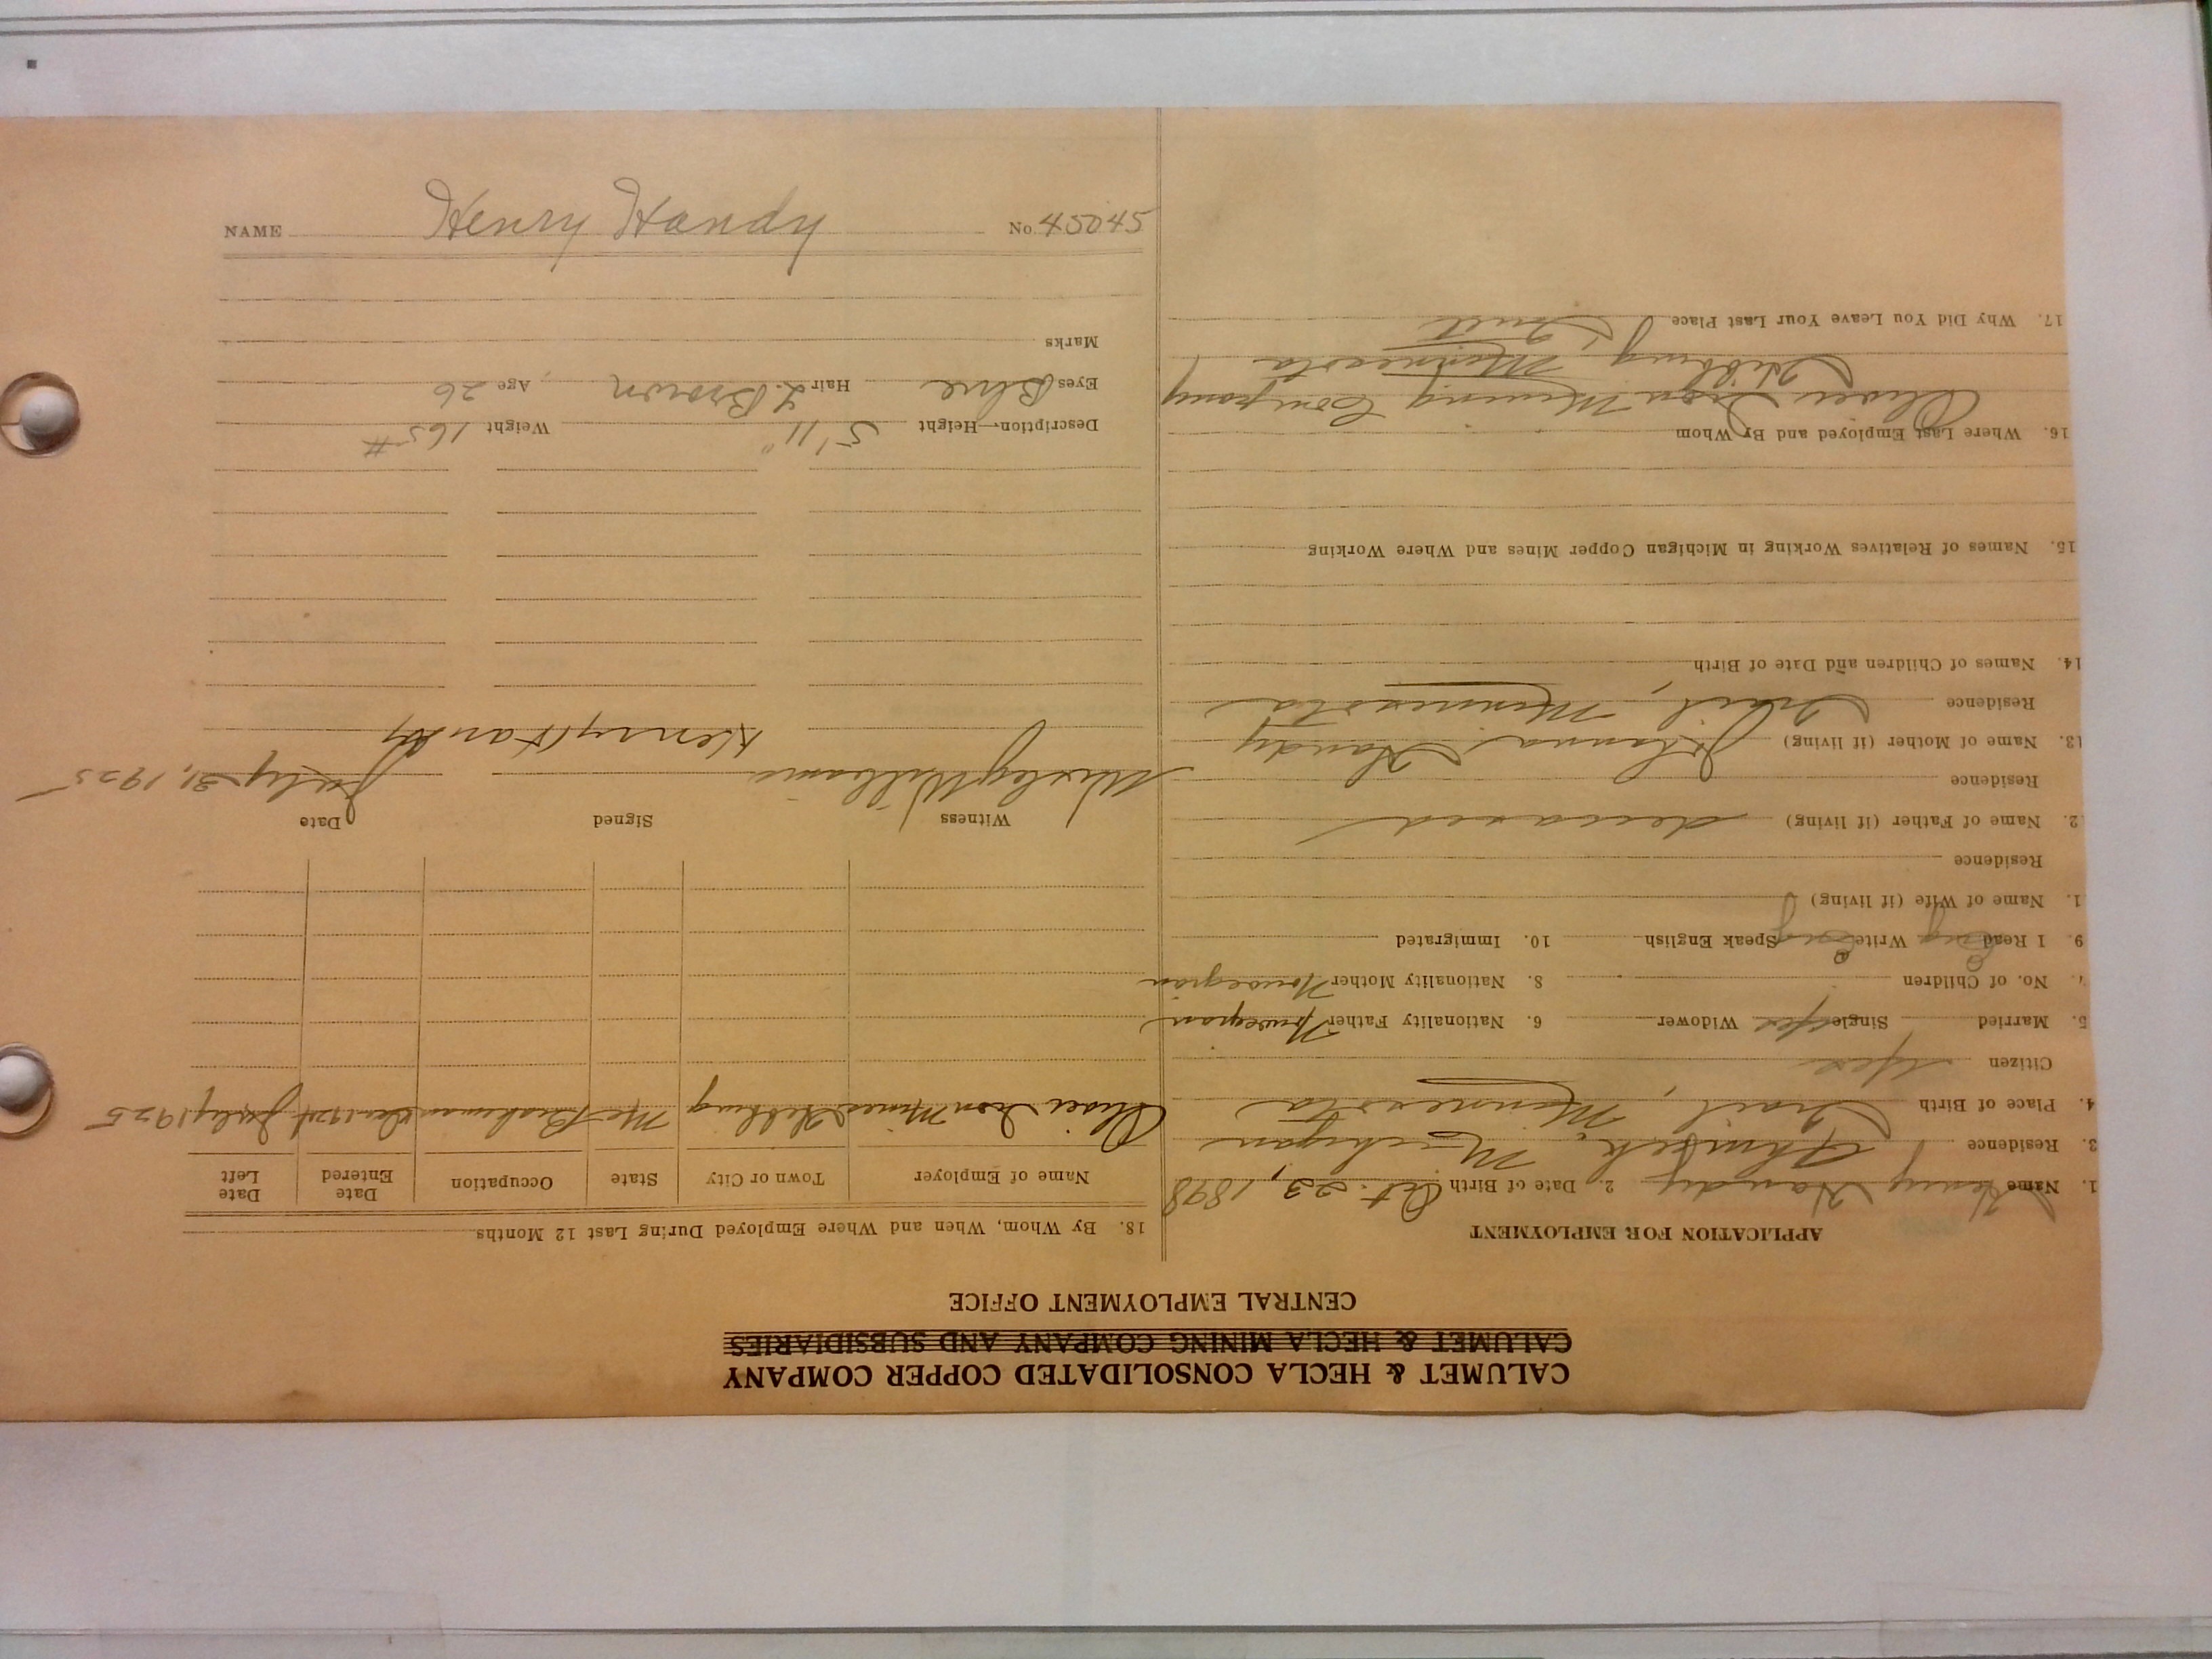 CALUMET & HECLA CONSOLIDATED COPPER COMPANY
CALUMET & HECLA MINING COMPANY AND SUBSIDIARIES
CENTRAL EMPLOYMENT OFFICE
APPLICATION FOR EMPLOYMENT
1. Name Henry Handy 2. Date of Birth Oct. 23, 1898
3. Residence Ahmeek, Michigan
4. Place of Birth Trail, Minnesota
Citizen yes
5. Married Single yes Widower 6. Nationality Father Norwegian
7. No. of Children 8. Nationality Mother Norwegian
9. I Read Eng Write Eng Speak English 10. Immigrated
1. Name of Wife (if living)
Residence
2. Name of Father (if living) deceased
Residence
13. Name of Mother (if living) Johanna Handy
Residence Trail, Minnesota
14. Names of Children and Date of Birth
15. Names of Relatives Working in Michigan Copper Mines and Where Working
16. Where Last Employed and By Whom
Oliver Iron Mining Company
Hibbing, Minnesota
17. Why Did You Leave Your Last Place Quit
18. By Whom, When and Where Employed During Last 12 Months
Name of Employer Town or City State Occupation Date Entered Date Left
Oliver Iron Mines Hibbing Brakeman July 1925
Witness Signed Date
Wesley Williams Henry Handy July 31, 1925
Description—Height 5' 11" Weight 165#
Eyes Blue Hair L. Brown Age 26
Marks
NAME Henry Handy No. 45045